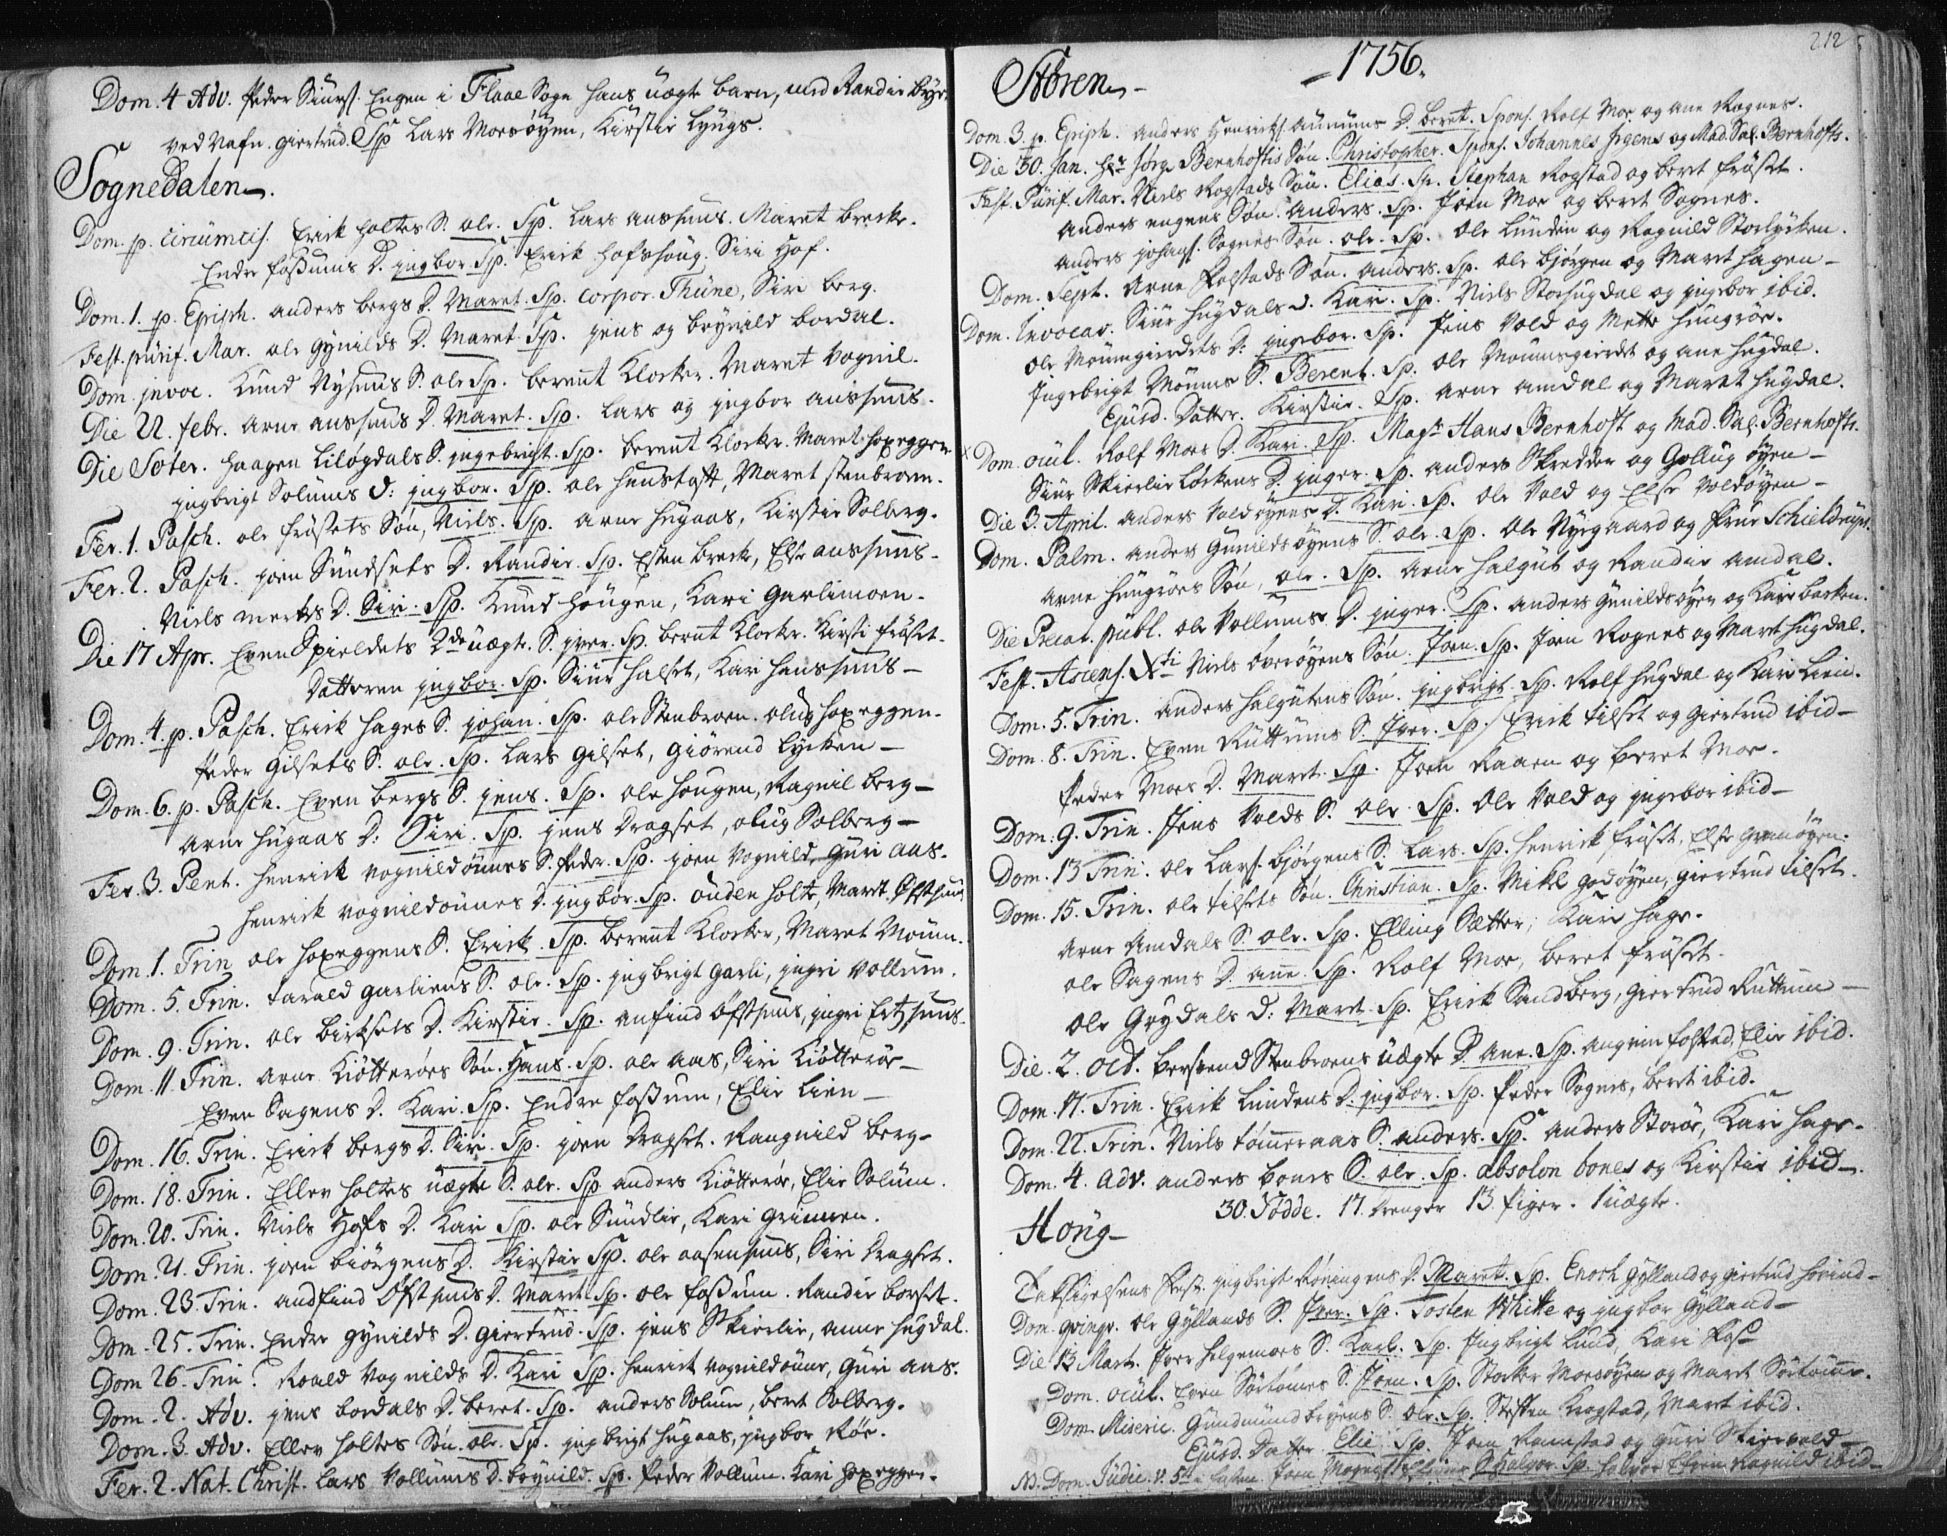 Dom. 4 Adv. Peder Siurs. Engen i Flaae Sogn hans uægte barn, med Randie
ved Nafn. Giertrud. Sp Lars Moesøyen, Kirstie Lyngs.
Sognedalen.
Dom. p. Circumcis. Erick Holtes S. ole. Sp. Lars aussuns. Maret brecke.
Endre foßums D. jngbor. Sp. Erick hofshoug. Siri Hof.
Dom. 1. p. Epiph. anders bergs D. Maret. Sp. Corpor. Thüne, Siri berg.
Fest. purif. Mar. ole gynilds D. Maret. Sp. jens og brynild bordal.
Dom. jnvoc. Knud Nysuns S. ole Sp. berent Klocker. Maret Vognil.
Die 22. febr. arne aussuns D Maret. Sp. Lars og jngbor aussuns.
Die Soter. haagen Liløgdals S. jngebrigt. Sp. berent Klocker. Maret hoxeggen
jngbrigt Solums D: jngbor. Sp. ole henstøtt, Maret stenbroen.
Fer. 1. Pasch. ole frøsets Søn, Niels. Sp. arne hugaas, Kirstie Solberg.
Fer. 2. Pasch. joen Sundsets D. Randie. Sp. Esten breck, Else aussuns.
Niels mertes D. Siri. Sp. Knud hougen, Kari Garlimoen.
Die 17 Apr. Even Spieldets 2de uægte. S. jver. Sp. bernt Klocker. Kirsti frøset.
Datteren jngbor. Sp. Siur halset, Kari hanssuns
Dom. 4. p. Pasch. Erick hages S. johan. Sp. ole Stenbroen. olug hoxeggen.
Peder Gilsets S. ole. Sp. Lars Gilset, Giørend Lycken
Dom. 6. p. Pasch. Even bergs S. jens. Sp. ole hougen, Ragnil berg
Arne hugaas D: Siri. Sp. jens Dragset, olug Solberg
Fer. 3. Pent. henrick vognildounes S. Peder. Sp. joen Vognild, Guri aas.
henrick vognildounes D. jngbor. Sp. ouden holte, Maret Øfstsuns
Dom 1. Trin ole hoxeggens S. Erick. Sp. berent Klocker, Maret Moum.
Dom. 5. Trin. tarald garliens S. ole. Sp. jngbrigt garli, jngri vollum.
Dom. 9. Trin. ole birksets D. Kirstie. Sp. anfind øfstsuns, jngri Ertzsuns.
Dom. 11 Trin. arne Kiøtterøes Søn. Hans. Sp. ole aas, Siri Kiøtterøe
Even Sagens D. Kari. Sp. Endre foßum, Elie Lien
Dom. 16. Trin. Erick bergs D. Siri. Sp. joen Dragset. Rangnild berg
Dom. 18. Trin. Ellev holtes uægte S. ole. Sp. anders Kiøtterøe, Elie Solum.
Dom. 20. Trin. Niels Hofs D. Kari Sp. ole Sundlie, Kari Grinnen.
Dom. 21. Trin. joen biørgens D. Kirstie Sp. ole aasensuns, Siri Dragset.
Dom. 23. Trin. andfind Øfstsuns D. Maret. Sp. ole foßum. Randie borset.
Dom. 25. Trin. Endre gynilds D. Giertrud. Sp. jens Skierlie, anne hugdal.
Dom 26. Trin. Roald Vognilds D. Kari Sp. henrick vognildoune, Guri aas.
Dom. 2. Adv. jens bordals D. beret. Sp. anders Solum, beret Solberg.
Dom. 3. Adv. Ellev holtes Søn. ole. Sp. jngbrigt hugaas, jngbor Røe.
Fer. 2. Nat. Christ. Lars Vollums D. brynild. Sp. Peder Vollum. Kari hoxeggen.
212
Støren.
1756.
Dom. 3. p. Epiph. anders Henricks. aunums D. beret. Spons. Rolf Moe og ane Rognes.
Die 30. Jan. Hr Jørg. Bernhoftis Søn. Christopher. Spons. Johannes Irgens og Mad. Sal. Bernhofts.
Fest. Purif. Mar. Niels Rogstads Søn. Elias. Sp. Stephan Rogstad og beret frøset.
Anders engens Søn. anders. Sp. Joen Moe og beret Sognes.
anders johans. Sognes Søn. ole. Sp. ole Lunden og Ragnild Storlycken.
Dom. Sept. Arne Polstads Søn. anders. Sp. ole bjørgen og Maret hagen
Dom. Invocav. Siur hugdals d. Kari. Sp. Niels Storhugdal og jngebor ibid.
ole Moumgierdets D. jngebor. Sp. Jens Vold og Mette hungrøe.
Jngebrigt Moums S. Berent. Sp. ole Moumsgierdet og ane hugdal.
Ejusd. Datter. Kirstie. Sp. arne amdal og Maret hugdal.
Dom. ocul. Rolf Moes D. Kari. Sp. Magr. Hans Bernhoft og Mad. Sal. Bernhofts.
Siur Skierlieløckens D. jnger. Sp. anders Skredder og Gollug øyen
Die 3. April. anders Voldøyens D. Kari. Sp. ole Vold og Else Voldøyen
Dom. Palm. anders Gunildsøyens S. ole. Sp. ole Nyegaard og Frue Schieldrups.
Arne hungrøes Søn, ole. Sp. arne halgut og Randie amdal.
Die Precat. publ. ole Vollums D. jnger. Sp. anders Gunildsøyen og Kari backen.
Fest. Ascens. Xti Niels overøyens Søn. Joen. Sp. Joen Rognes og Maret hugdal.
Dom. 5. Trin. anders halgutens Søn. jngbrigt. Sp. Rolf hugdal og Kari Lien.
Dom. 8. Trin. Even Ruttums S. Jver. Sp. Erick tilset og Giertrud ibid
Peder Moes D. Maret. Sp. Joen Raaen og beret Moe.
Dom. 9. Trin. Jens Volds S. ole. Sp. ole Vold og jngebor ibid
Dom. 13 Trin. ole Lars. bjørgens S. Lars. Sp. henrick frøset, Else Grønøyen.
Dom. 15. Trin. ole tilsets Søn. Christian. Sp. Mikel Godøyen, Giertrud tilset.
Arne Amdals S. ole. Sp. Elling Sætter, Kari hage.
ole Sagens D. ane. Sp. Rolf Moe, beret frøset.
ole Grydals d: Maret. Sp. Erick Sandberg, Giertrud Ruttum
Die. 2. Oct. Stenbroens uægte D. Ane. Sp. fostad, Elie ibid.
Dom. 17. Trin. Erick Lundens D. jngbor. Sp. Peder Sognes, beret ibid.
Dom. 22. Trin. Niels tømmeraas S. anders. Sp. anders Storøe, Kari hage.
Dom. 4. Adv. anders bones S. ole. Sp. absolon bones og Kirstie ibid.
30. Fødde. 17. drenger 13. piger. 1 uægte.
Høug
Taksigelsens Fest. jngbrigt Røningens D. Maret. Sp. Enoch Gylland og Giertrud horind
Dom. qvinqv. ole Gyllands S. Jver. Sp. Tosten White og jngbor Gylland
Die 13 Mart. Jver helgemoes S. Karl. Sp. Jngbrigt Lund, Kari
Dom. ocul. Even Sørtømes S. Joen. Sp. Stocker Moesøyen og Maret Sørtøme.
Dom. Miseric. Gundmund bryens S. ole. Sp. Steffen Krogstad, Maret ibid.
Ejusd. Datter. Elie. Sp. Joen Ramstad og Guri Skiervold
NB. Dom. Judic. Joen S. halvor. Sp. halvor Ragnild ibid